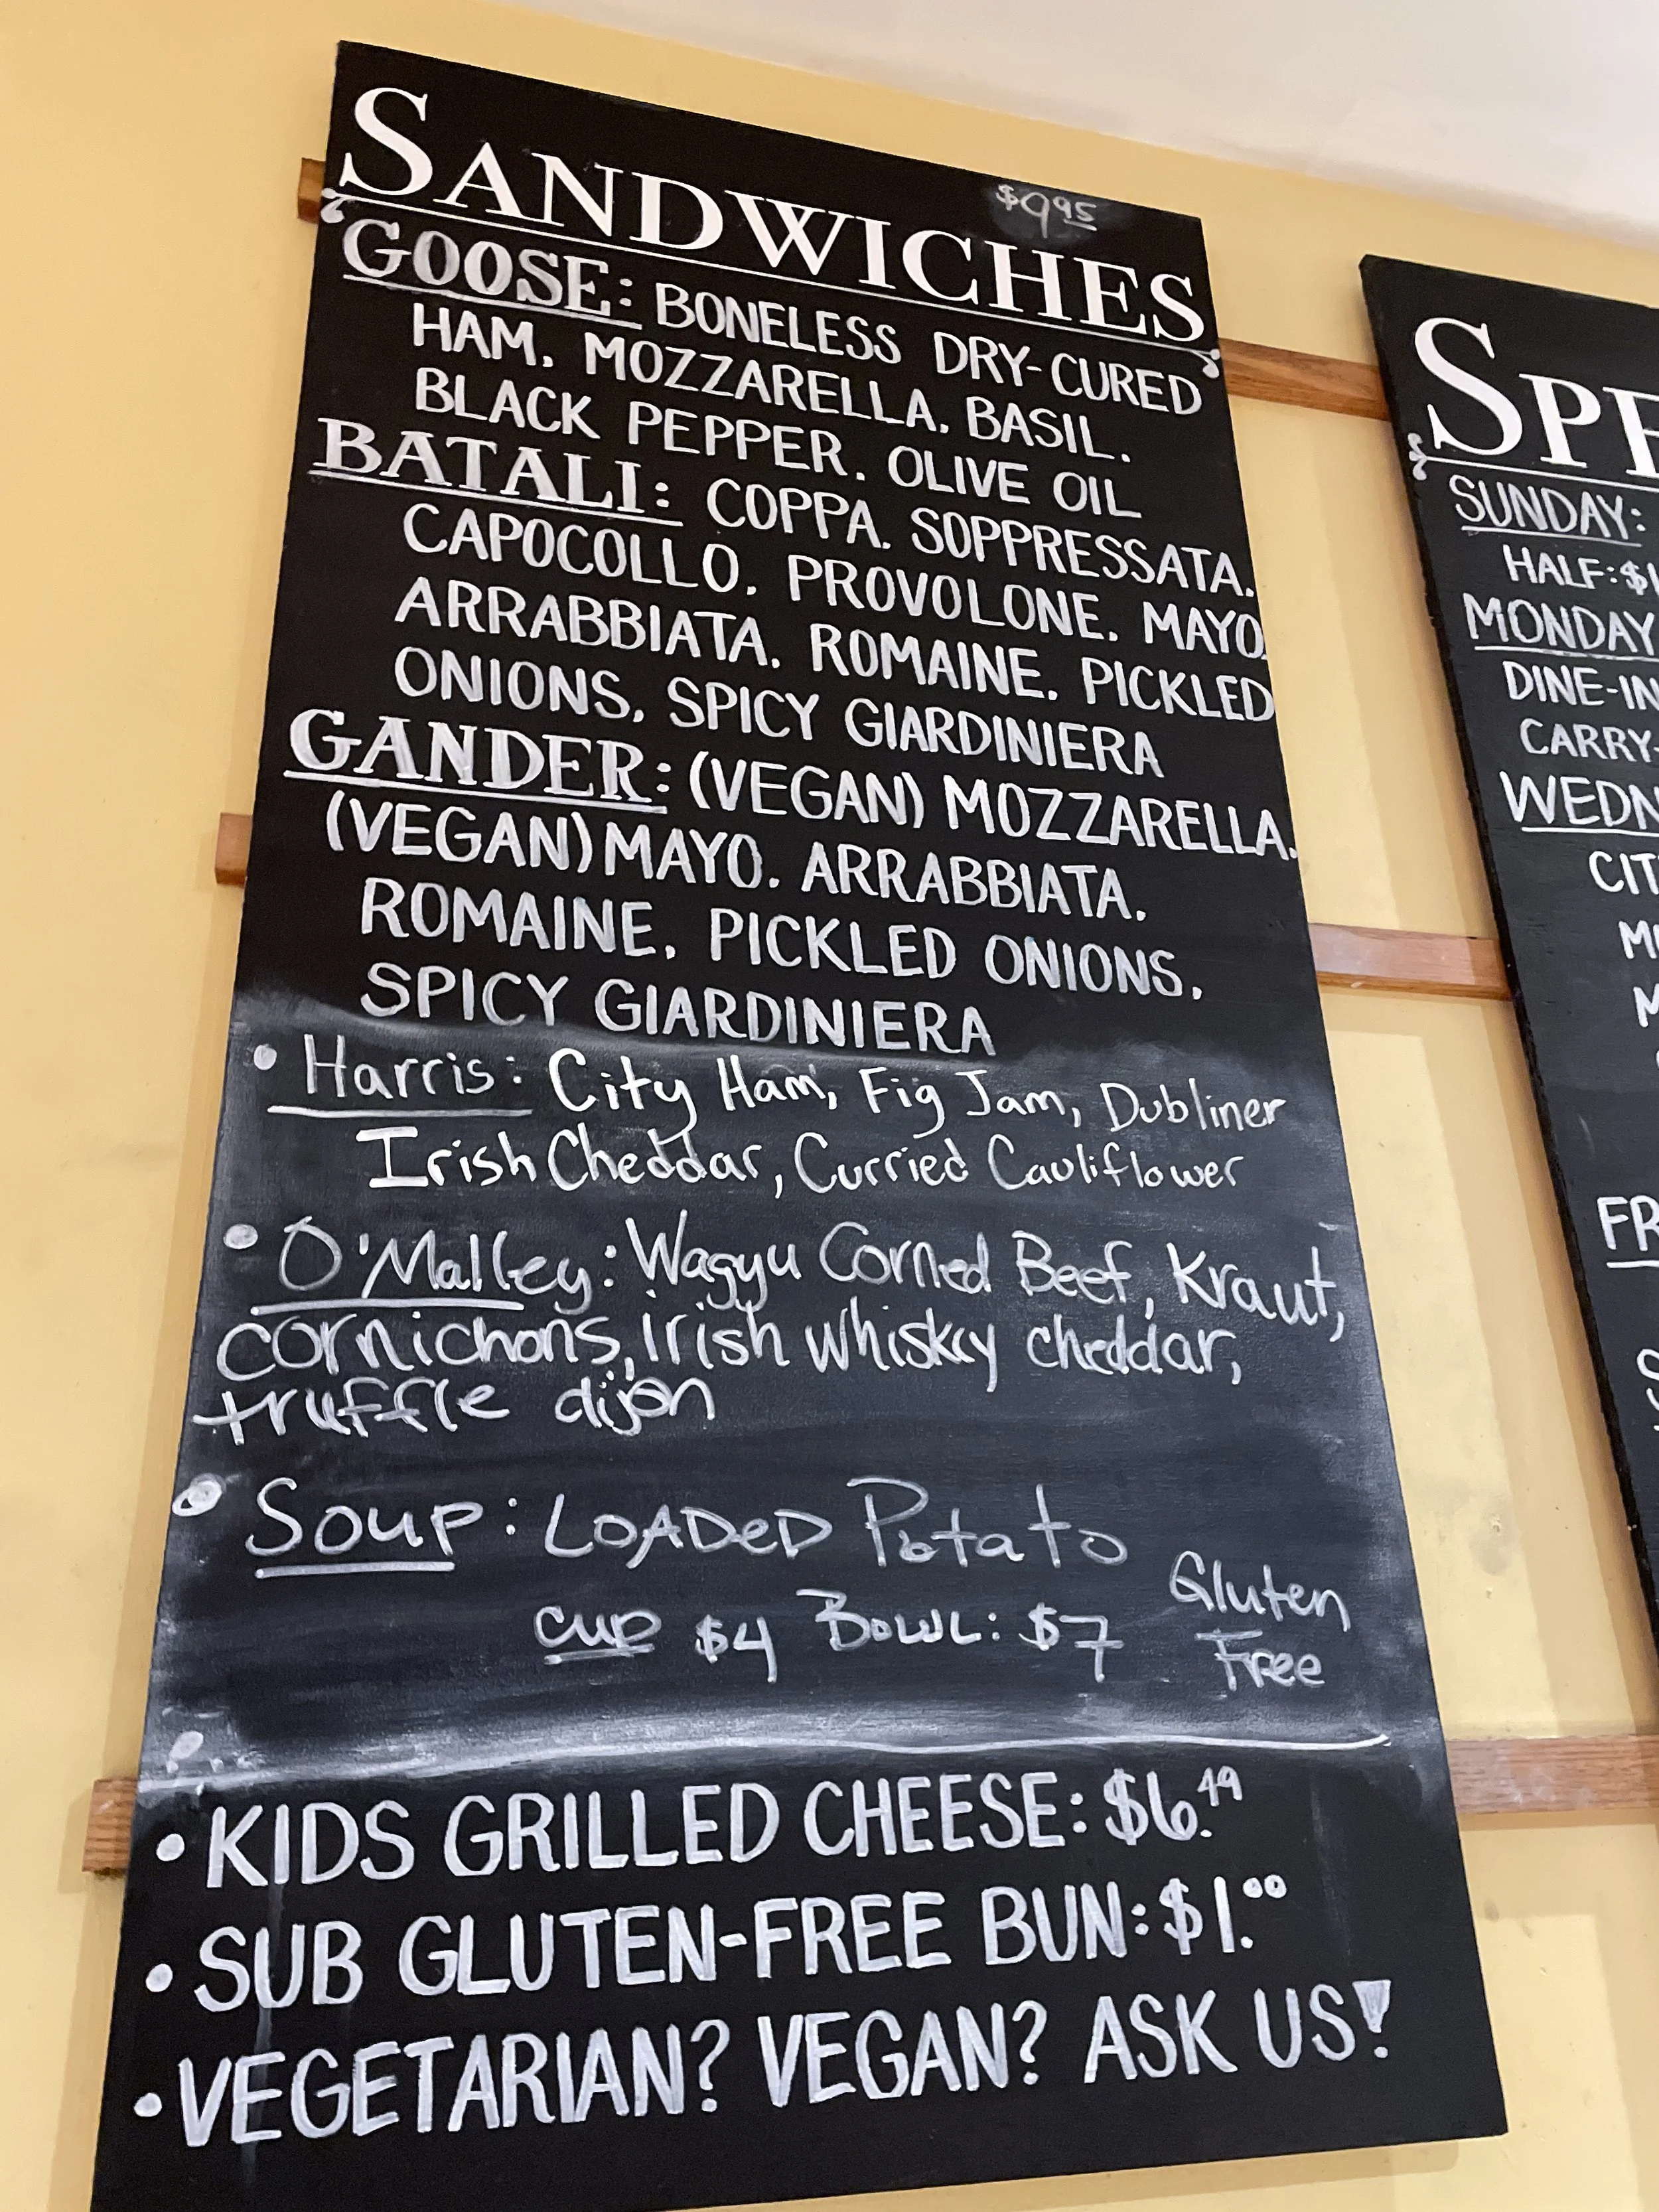 SANDWICHES $9.95
GOOSE: BONELESS DRY-CURED
HAM. MOZZARELLA. BASIL.
BLACK PEPPER. OLIVE OIL
BATALI: COPPA. SOPPRESSATA.
CAPOCOLLO. PROVOLONE. MAYO.
ARRABBIATA. ROMAINE. PICKLED
ONIONS. SPICY GIARDINIERA
GANDER: (VEGAN) MOZZARELLA.
(VEGAN) MAYO. ARRABBIATA.
ROMAINE. PICKLED ONIONS.
SPICY GIARDINIERA
• Harris: City Ham, Fig Jam, Dubliner
Irish Cheddar, Curried Cauliflower
• O'Malley: Wagyu Corned Beef, Kraut,
cornichons, irish whiskey cheddar,
truffle dijon
• Soup: LOADeD Potato
cup $4 BowL: $7 Gluten
Free
• KIDS GRILLED CHEESE: $6.49
• SUB GLUTEN-FREE BUN: $1.00
• VEGETARIAN? VEGAN? ASK US!
SPE
SUNDAY:
HALF: $1
MONDAY
DINE-IN
CARRY-
WEDN
CIT
FR